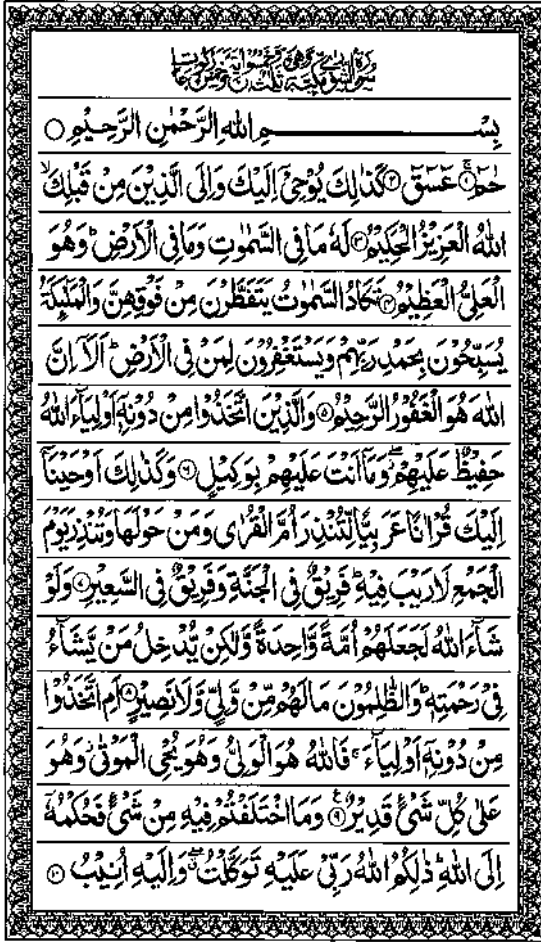 سورة الشورى مكية وهي ثلث وخمسون اية وخمس ركوعات
بِسْمِ اللهِ الرَّحْمٰنِ الرَّحِيْمِ ○
حٰمٓ ۚ﴿۱﴾ عٓسٓقٓ ﴿۲﴾ كَذٰلِكَ يُوْحِيْٓ اِلَيْكَ وَاِلَى الَّذِيْنَ مِنْ قَبْلِكَ ۙ
اللهُ الْعَزِيْزُ الْحَكِيْمُ ﴿۳﴾ لَهٗ مَا فِي السَّمٰوٰتِ وَمَا فِي الْاَرْضِ ؕ وَهُوَ
الْعَلِيُّ الْعَظِيْمُ ﴿۴﴾ تَكَادُ السَّمٰوٰتُ يَتَفَطَّرْنَ مِنْ فَوْقِهِنَّ وَالْمَلٰٓئِكَةُ
يُسَبِّحُوْنَ بِحَمْدِ رَبِّهِمْ وَيَسْتَغْفِرُوْنَ لِمَنْ فِي الْاَرْضِ ؕ اَلَآ اِنَّ
اللهَ هُوَ الْغَفُوْرُ الرَّحِيْمُ ﴿۵﴾ وَالَّذِيْنَ اتَّخَذُوْا مِنْ دُوْنِهٖٓ اَوْلِيَآءَ اللهُ
حَفِيْظٌ عَلَيْهِمْ ۖ وَمَآ اَنْتَ عَلَيْهِمْ بِوَكِيْلٍ ﴿۶﴾ وَكَذٰلِكَ اَوْحَيْنَآ
اِلَيْكَ قُرْاٰنًا عَرَبِيًّا لِّتُنْذِرَ اُمَّ الْقُرٰى وَمَنْ حَوْلَهَا وَتُنْذِرَ يَوْمَ
الْجَمْعِ لَا رَيْبَ فِيْهِ ؕ فَرِيْقٌ فِي الْجَنَّةِ وَفَرِيْقٌ فِي السَّعِيْرِ ﴿۷﴾ وَلَوْ
شَآءَ اللهُ لَجَعَلَهُمْ اُمَّةً وَّاحِدَةً وَّلٰكِنْ يُّدْخِلُ مَنْ يَّشَآءُ
فِيْ رَحْمَتِهٖ ؕ وَالظّٰلِمُوْنَ مَا لَهُمْ مِّنْ وَّلِيٍّ وَّلَا نَصِيْرٍ ﴿۸﴾ اَمِ اتَّخَذُوْا
مِنْ دُوْنِهٖٓ اَوْلِيَآءَ ۚ فَاللهُ هُوَ الْوَلِيُّ وَهُوَ يُحْيِ الْمَوْتٰى ؗ وَهُوَ
عَلٰى كُلِّ شَيْءٍ قَدِيْرٌ ﴿۹﴾ وَمَا اخْتَلَفْتُمْ فِيْهِ مِنْ شَيْءٍ فَحُكْمُهٗٓ
اِلَى اللهِ ؕ ذٰلِكُمُ اللهُ رَبِّيْ عَلَيْهِ تَوَكَّلْتُ ۖ وَاِلَيْهِ اُنِيْبُ ﴿۱۰﴾